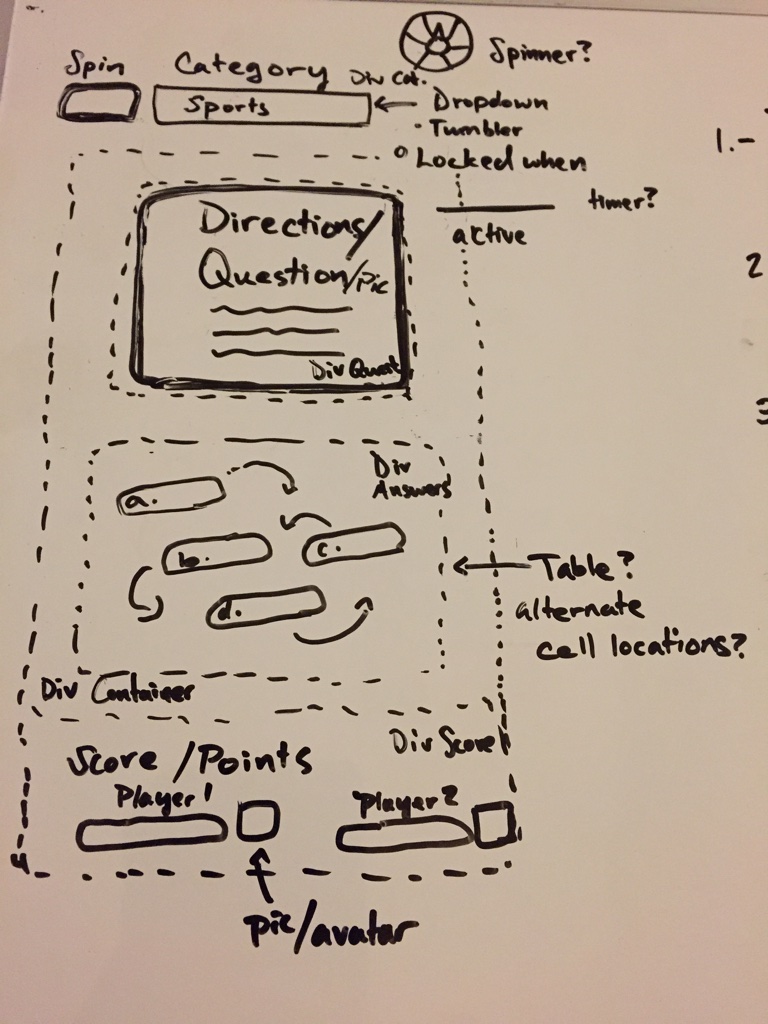 Spinner?
Spin
Category
Div Cat.
Sports
Dropdown
• Tumbler
Locked when
timer?
active
1.-
2
3
Directions/
Question/Pic
Div Quest
Div
Answers
a.
b.
c.
d.
Table?
alternate
cell locations?
Div Container
Div Score
Score/Points
Player 1
Player 2
pic/avatar